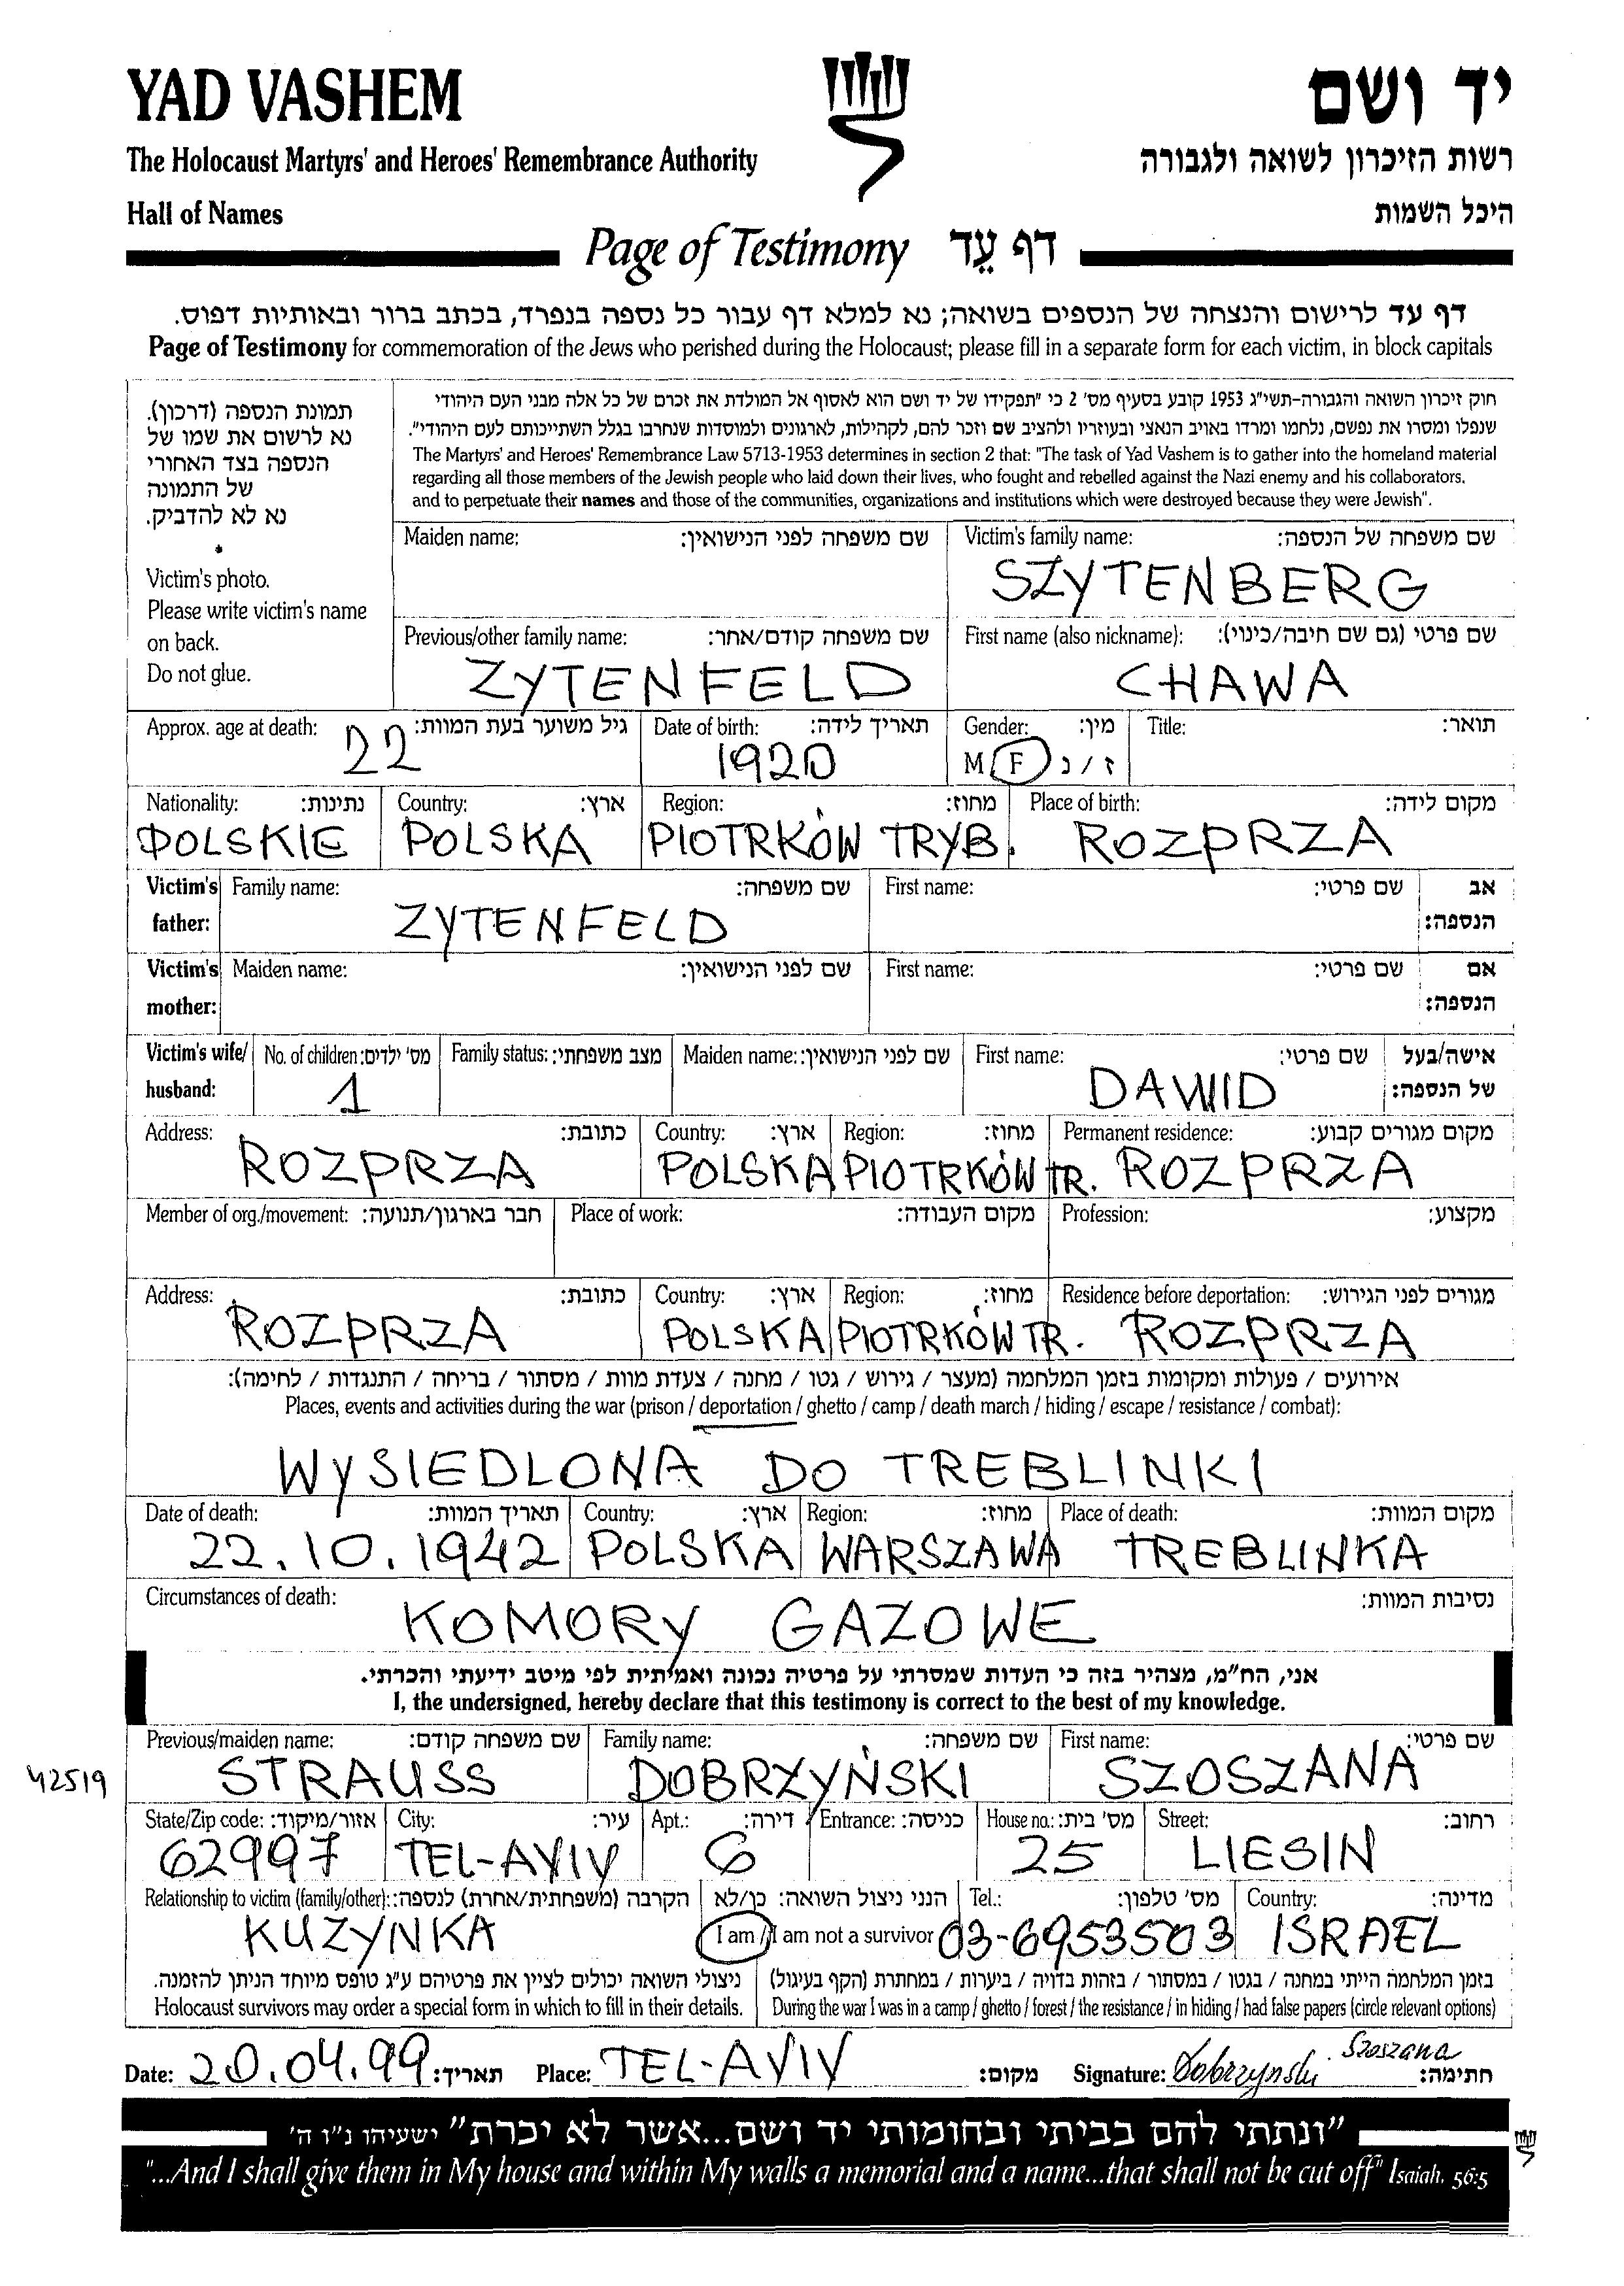 YAD VASHEM
יד ושם
The Holocaust Martyrs' and Heroes' Remembrance Authority
רשות הזיכרון לשואה ולגבורה
Hall of Names
היכל השמות
Page of Testimony דף עֵד
דף עד לרישום והנצחה של הנספים בשואה; נא למלא דף עבור כל נספה בנפרד, בכתב ברור ובאותיות דפוס.
Page of Testimony for commemoration of the Jews who perished during the Holocaust; please fill in a separate form for each victim, in block capitals
תמונת הנספה (דרכון).
נא לרשום את שמו של
הנספה בצד האחורי
של התמונה
נא לא להדביק.
Victim's photo.
Please write victim's name
on back.
Do not glue.
חוק זיכרון השואה והגבורה-תשי"ג 1953 קובע בסעיף מס' 2 כי "תפקידו של יד ושם הוא לאסוף אל המולדת את זכרם של כל אלה מבני העם היהודי
שנפלו ומסרו את נפשם, נלחמו ומרדו באויב הנאצי ובעוזריו ולהציב שם וזכר להם, לקהילות, לארגונים ולמוסדות שנחרבו בגלל השתייכותם לעם היהודי".
The Martyrs' and Heroes' Remembrance Law 5713-1953 determines in section 2 that: "The task of Yad Vashem is to gather into the homeland material
regarding all those members of the Jewish people who laid down their lives, who fought and rebelled against the Nazi enemy and his collaborators,
and to perpetuate their names and those of the communities, organizations and institutions which were destroyed because they were Jewish".
Maiden name: שם משפחה לפני הנישואין: Victim's family name: שם משפחה של הנספה:
SZYTENBERG
Previous/other family name: שם משפחה קודם/אחר: First name (also nickname): שם פרטי (גם שם חיבה/כינוי):
ZYTENFELD CHAWA
Approx. age at death: גיל משוער בעת המוות: Date of birth: תאריך לידה: Gender: מין: Title: תואר:
22 1920 M F ז / נ
Nationality: נתינות: Country: ארץ: Region: מחוז: Place of birth: מקום לידה:
POLSKIE POLSKA PIOTRKÓW TRYB. ROZPRZA
Victim's father: Family name: שם משפחה: First name: שם פרטי: אב הנספה:
ZYTENFELD
Victim's mother: Maiden name: שם לפני הנישואין: First name: שם פרטי: אם הנספה:
Victim's wife/ husband: No. of children: מס' ילדים: Family status: מצב משפחתי: Maiden name: שם לפני הנישואין: First name: שם פרטי: אישה/בעל של הנספה:
1 DAWID
Address: כתובת: Country: ארץ: Region: מחוז: Permanent residence: מקום מגורים קבוע:
ROZPRZA POLSKA PIOTRKÓW TR. ROZPRZA
Member of org./movement: חבר בארגון/תנועה: Place of work: מקום העבודה: Profession: מקצוע:
Address: כתובת: Country: ארץ: Region: מחוז: Residence before deportation: מגורים לפני הגירוש:
ROZPRZA POLSKA PIOTRKÓW TR. ROZPRZA
אירועים / פעולות ומקומות בזמן המלחמה (מעצר / גירוש / גטו / מחנה / צעדת מוות / מסתור / בריחה / התנגדות / לחימה):
Places, events and activities during the war (prison / deportation / ghetto / camp / death march / hiding / escape / resistance / combat):
WYSIEDLONA DO TREBLINKI
Date of death: תאריך המוות: Country: ארץ: Region: מחוז: Place of death: מקום המוות:
22.10.1942 POLSKA WARSZAWA TREBLINKA
Circumstances of death: נסיבות המוות:
KOMORY GAZOWE
אני, הח"מ, מצהיר בזה כי העדות שמסרתי על פרטיה נכונה ואמיתית לפי מיטב ידיעתי והכרתי.
I, the undersigned, hereby declare that this testimony is correct to the best of my knowledge.
Previous/maiden name: שם משפחה קודם: Family name: שם משפחה: First name: שם פרטי:
42519 STRAUSS DOBRZYŃSKI SZOSZANA
State/Zip code: אזור/מיקוד: City: עיר: Apt.: דירה: Entrance: כניסה: House no.: מס' בית: Street: רחוב:
62997 TEL-AVIV 6 25 LIESIN
Relationship to victim (family/other): הקרבה (משפחתית/אחרת) לנספה: הנני ניצול השואה: כן/לא Tel.: מס' טלפון: Country: מדינה:
KUZYNKA I am / I am not a survivor 03-6953503 ISRAEL
ניצולי השואה יכולים לציין את פרטיהם ע"ג טופס מיוחד הניתן להזמנה.
Holocaust survivors may order a special form in which to fill in their details.
בזמן המלחמה הייתי במחנה / בגטו / במסתור / בזהות בדויה / ביערות / במחתרת (הקף בעיגול)
During the war I was in a camp / ghetto / forest / the resistance / in hiding / had false papers (circle relevant options)
Date: 20.04.99 תאריך: Place: TEL-AVIV מקום: Signature: Dobrzynski Szoszana חתימה:
"ונתתי להם בביתי ובחומותי יד ושם...אשר לא יכרת" ישעיהו נ"ו ה'
"...And I shall give them in My house and within My walls a memorial and a name...that shall not be cut off" Isaiah. 56:5